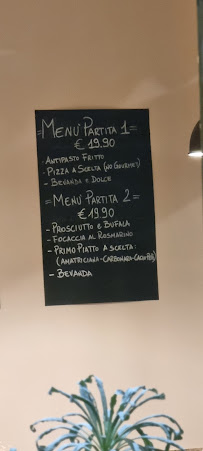 =MENU' PARTITA 1=
€ 19.90
- ANTIPASTO FRITTO
- PIZZA A SCELTA (NO GOURMET)
- BEVANDA E DOLCE
=MENU' PARTITA 2=
€ 19.90
- PROSCIUTTO E BUFALA
- FOCACCIA AL ROSMARINO
- PRIMO PIATTO A SCELTA:
(AMATRICIANA-CARBONARA-
- BEVANDA